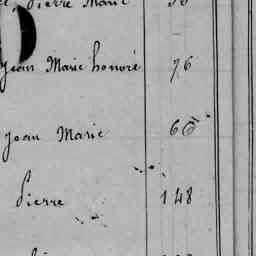 Pierre Marie
Jean Marie honoré 76
Jean Marie 60
Pierre 148